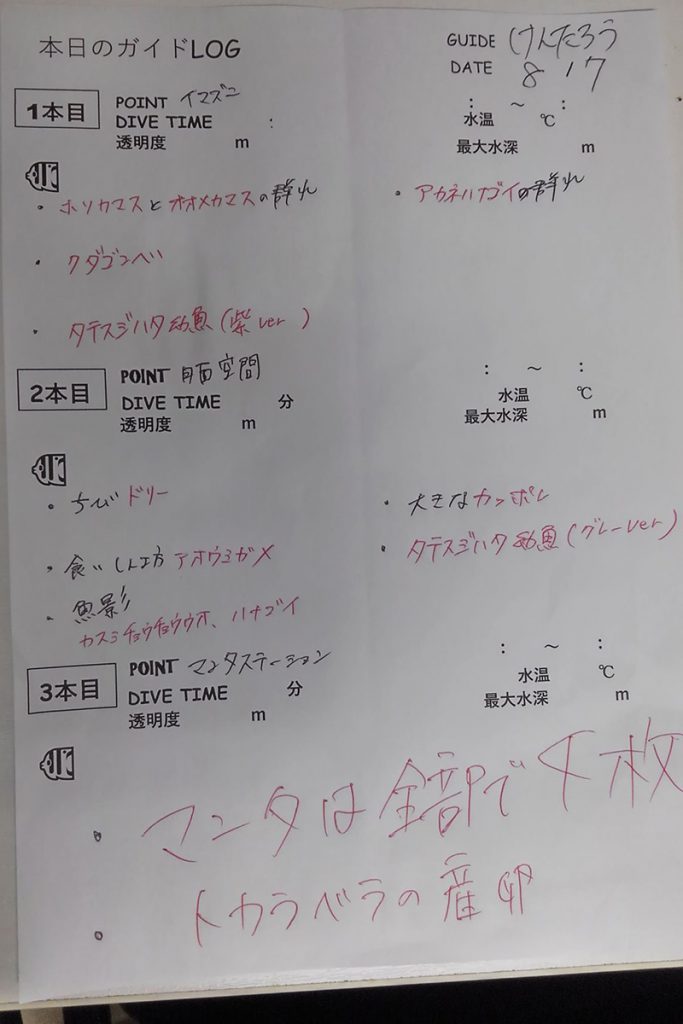 本日のガイドLOG
GUIDE けんたろう
DATE 8/7
1本目
POINT イマズニ
DIVE TIME :
透明度 m
: ~ :
水温 ℃
最大水深 m
・ホソカマスとオオメカマスの群れ
・アカネハナゴイの群れ
・クダゴンベ
・タテスジハタ幼魚(紫ver)
2本目
POINT 月面空間
DIVE TIME 分
透明度 m
: ~ :
水温 ℃
最大水深 m
・ちびドリー
・大きなカッポレ
・食いしん坊アオウミガメ
・タテスジハタ幼魚(グレーver)
・魚影
カスミチョウチョウウオ、ハナゴイ
3本目
POINT マンタステーション
DIVE TIME 分
透明度 m
: ~ :
水温 ℃
最大水深 m
・マンタは全部で4枚
・トカラベラの産卵